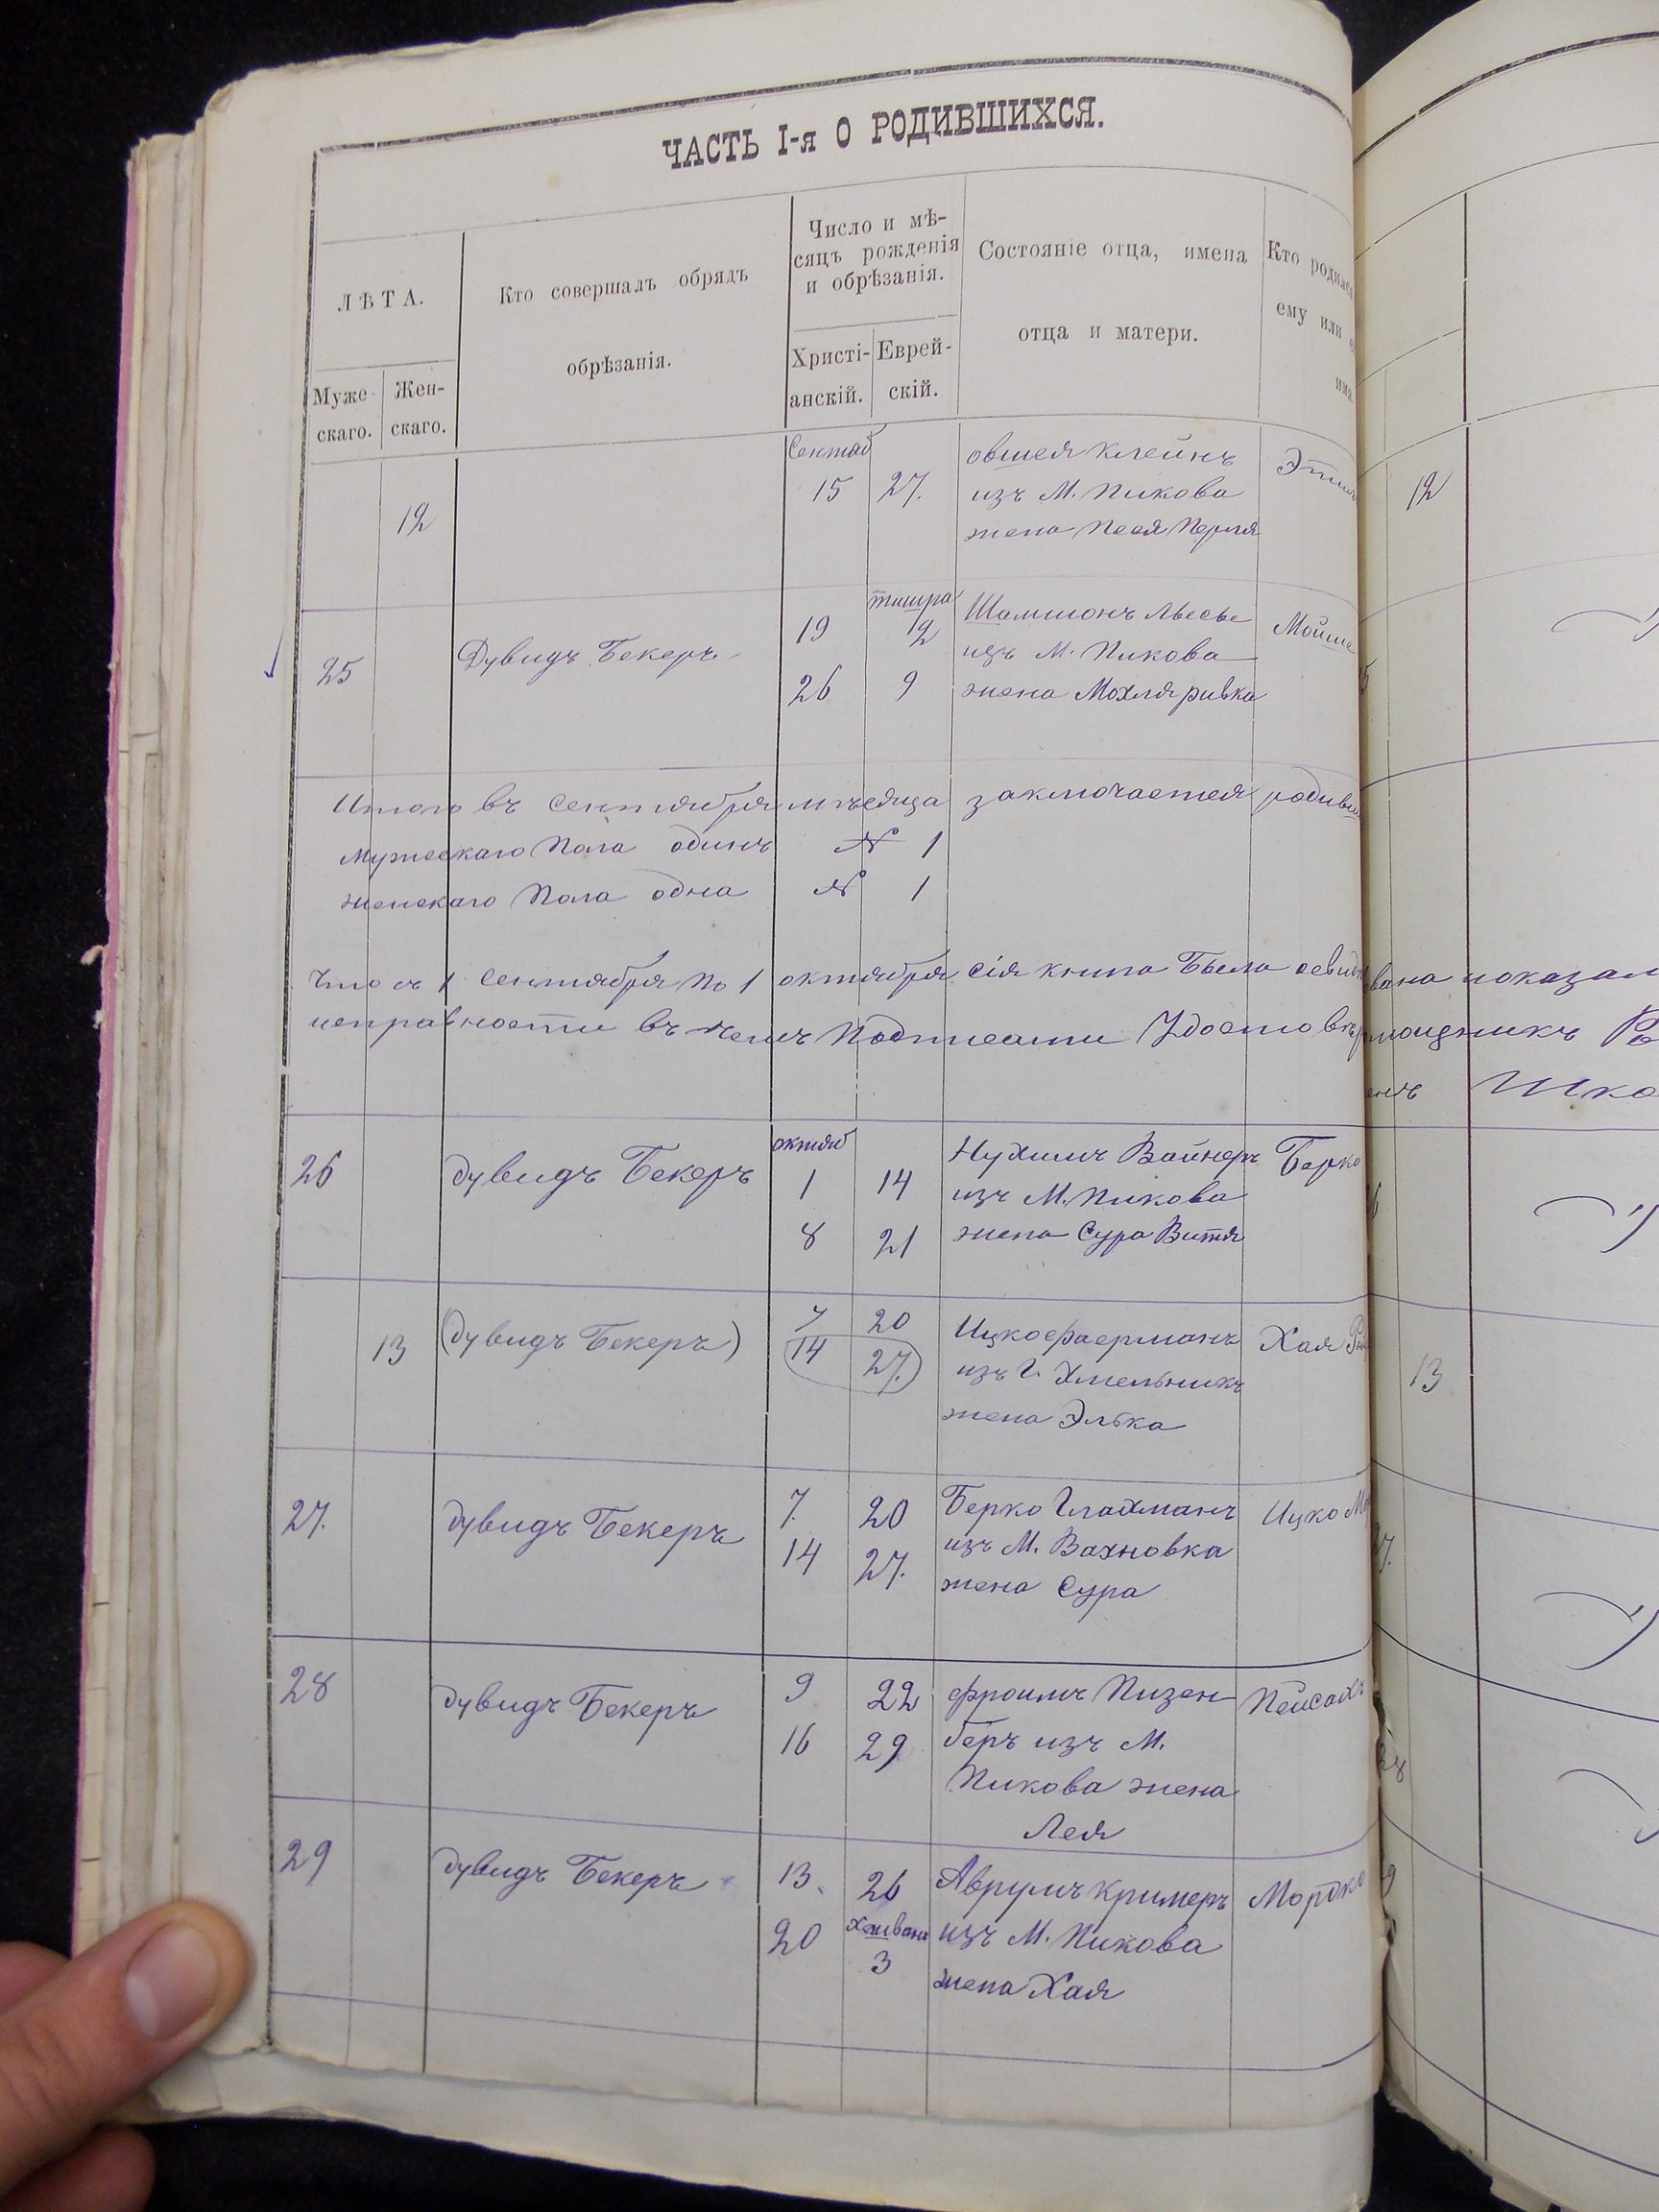 ЧАСТЬ I-я О РОДИВШИХСЯ.
ЛѢТА.
Муже-
скаго.
Жен-
скаго.
Кто совершалъ обрядъ
обрѣзанія.
Число и мѣ-
сяцъ рожденія
и обрѣзанія.
Христі-
анскій.
Еврей-
скій.
Состояніе отца, имена
отца и матери.
Кто родился
ему или
имя.
Сентяб
12
15 27.
овшея Клейнъ
изъ М. Пикова
жена Песя Перля
12
25
Дувидъ Бекеръ
19
тишра
12
26 9
Шамшонъ
изъ М. Пикова
жена Мохля ривка
Мойше
Итого въ сентября мѣсяца заключается
Мужескаго Пола одинъ № 1
женскаго Пола одна № 1
Что съ 1 сентября по 1 октября сія книга была
исправности въ чемъ
26
дувидъ Бекеръ
октяб
1 14
8 21
Нухимъ Вайнеръ
изъ М. Пикова
жена Сура Витя
Берко
13
(дувидъ Бекеръ)
7 20
14 27.
Ицко фаерманъ
изъ Г. Хмельникъ
жена Элька
Хая
13
27.
дувидъ Бекеръ
7. 20
14 27.
Берко Глахманъ
изъ М. Вахновка
жена Сура
Ицко
28
дувидъ Бекеръ
9 22
16 29
фроимъ Пизен-
беръ изъ М.
Пикова жена
Лея
Пейсахъ
29
дувидъ Бекеръ
13. 26
20
хешвана
3
Аврумъ Кримеръ
изъ М. Пикова
жена Хая
Мордко